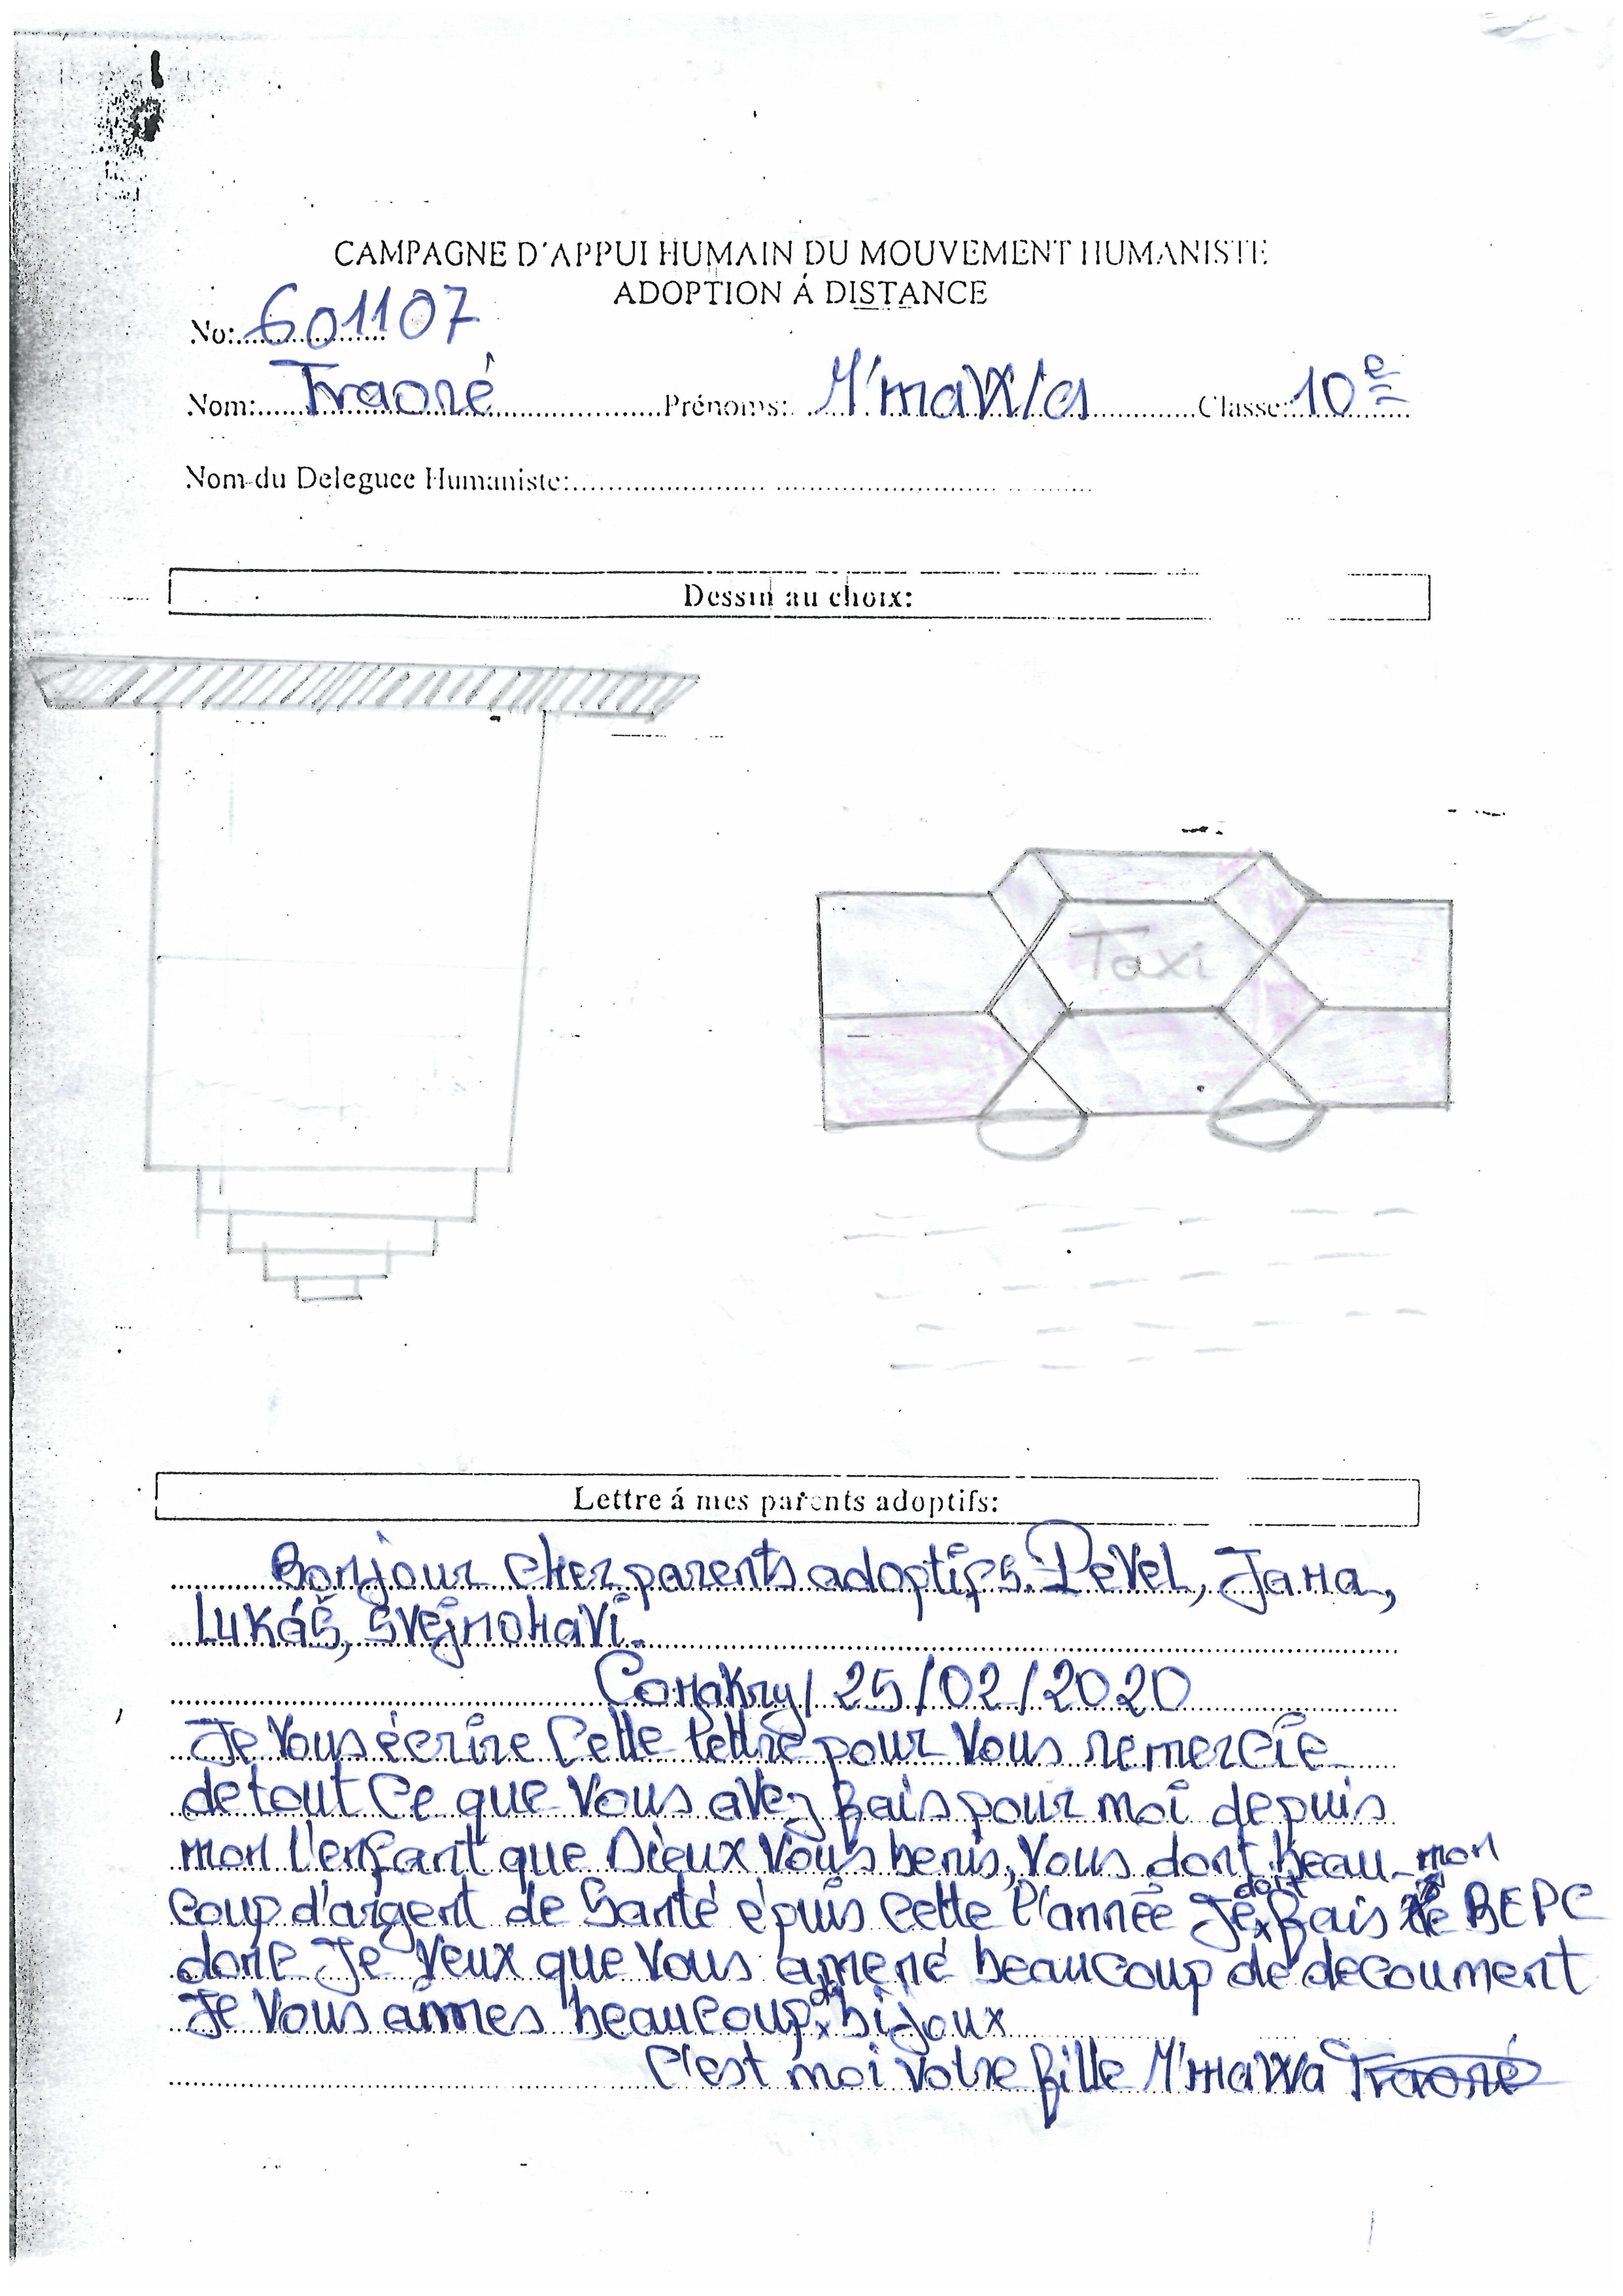 CAMPAGNE D'APPUI HUMAIN DU MOUVEMENT HUMANISTE
ADOPTION Á DISTANCE
No: 601107
Nom: Traoré Prénoms: M'mawa Classe: 10e
Nom du Deleguee Humaniste:
Dessin au choix:
Taxi
Lettre á mes parents adoptifs:
Bonjour cher parents adoptifs. Pevel, Jana,
Lukáš, Svejnohavi.
Conakry/ 25/02/2020
Je Vous écrire Cette lettre pour Vous remercie
de tout Ce que Vous avez fais pour moi depuis
mon l'enfant que Dieux Vous benis, Vous dont beau-
coup d'argent de Santé épuis Cette l'année Je doit fais mon BEPC
donc Je Veux que Vous amené beaucoup de decoument
Je Vous aîmes beaucoup de bijoux
C'est moi Votre fille M'mawa Traoré